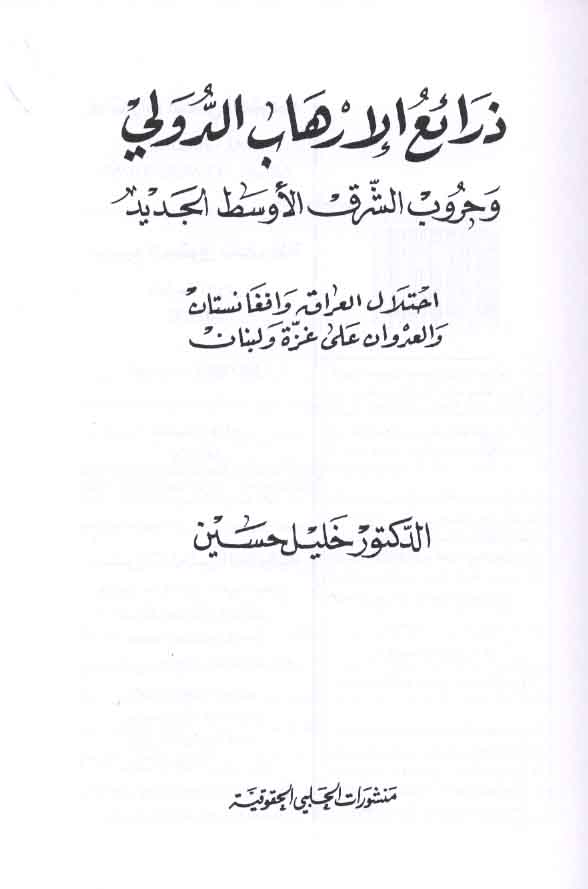 ذَرَائعُ الإرْهَابِ الدُّوَليْ
وَحُرُوبْ الشّرق الأوسَط الجَديد
احتلال العراق وَافغانستان
وَالعدوان عَلى غزّة وَلبنان
الدّكتور خَليل حسَين
منشورات الحلبي الحقوقيّة